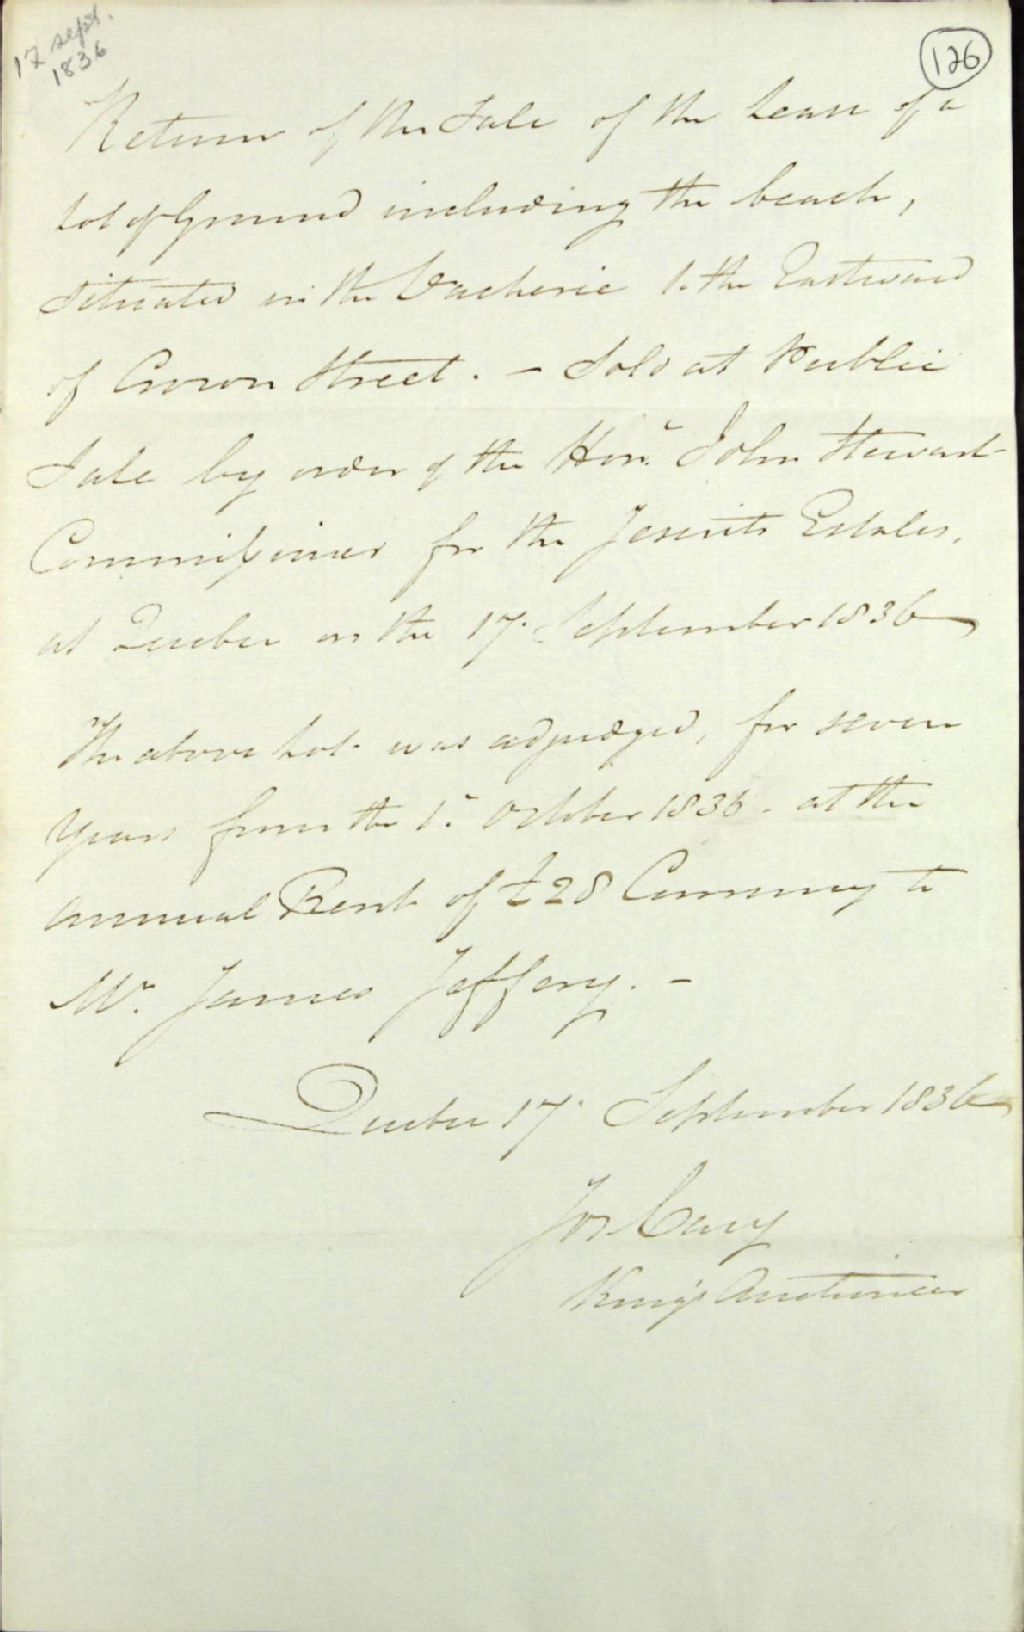 17 sept.
1836
126
Return of the Sale of the Lease of a
Lot of Ground including the beach,
Situated in the Vacherie to the Eastward
of Crown Street. – Sold at Public
Sale by order of the Hon. John Stewart
Commissioner for the Jesuits Estates,
at Quebec on the 17. September 1836
The above Lot was adjudged, for seven
Years from the 1. October 1836. at the
Annual Rent of £28 Currency to
Mr. James Jeffery. –
Quebec 17. September 1836
Jos Cary
King's Auctioneer